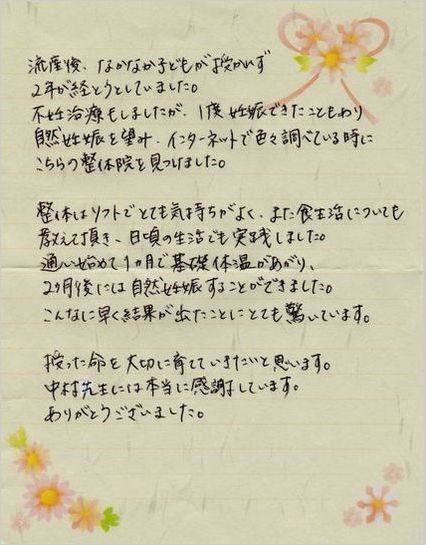 流産後、なかなか子どもが授かいず
2年が経とうとしていました。
不妊治療もしましたが、1度妊娠できたこともわり
自然妊娠を望み、インターネットで色々調べている時に
こちらの整体院を見つけました。
整体はソフトでとても気持ちがよく、また食生活についても
教えて頂き、日頃の生活でも実践しました。
通い始めて1ヵ月で基礎体温があがり、
2ヶ月後には自然妊娠することができました。
こんなに早く結果が出たことにとても驚いています。
授った命を大切に育てていきたいと思います。
中村先生には本当に感謝しています。
ありがとうございました。